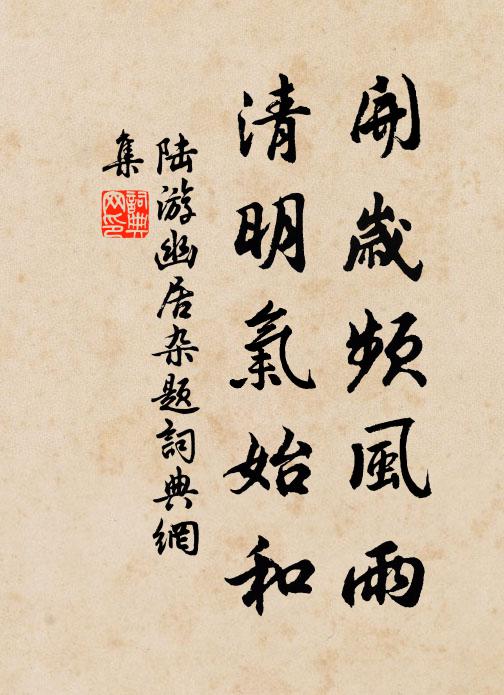 開歲頻風雨
清明氣始和
陆游幽居杂题詞典網
集
詞典
网印